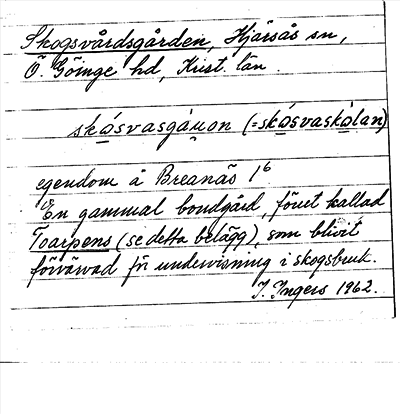 Skogsvårdsgården, Hjärsås sn,
Ö. Göinge hd, Krist. län.
skósvasgáʀon (=skósvaskòlan)
egendom å Breanäs 1⁶
En gammal bondgård, förut kallad
Toarpens (se detta belägg), som blivit
förvärvad för undervisning i skogsbruk.
I. Ingers 1962.